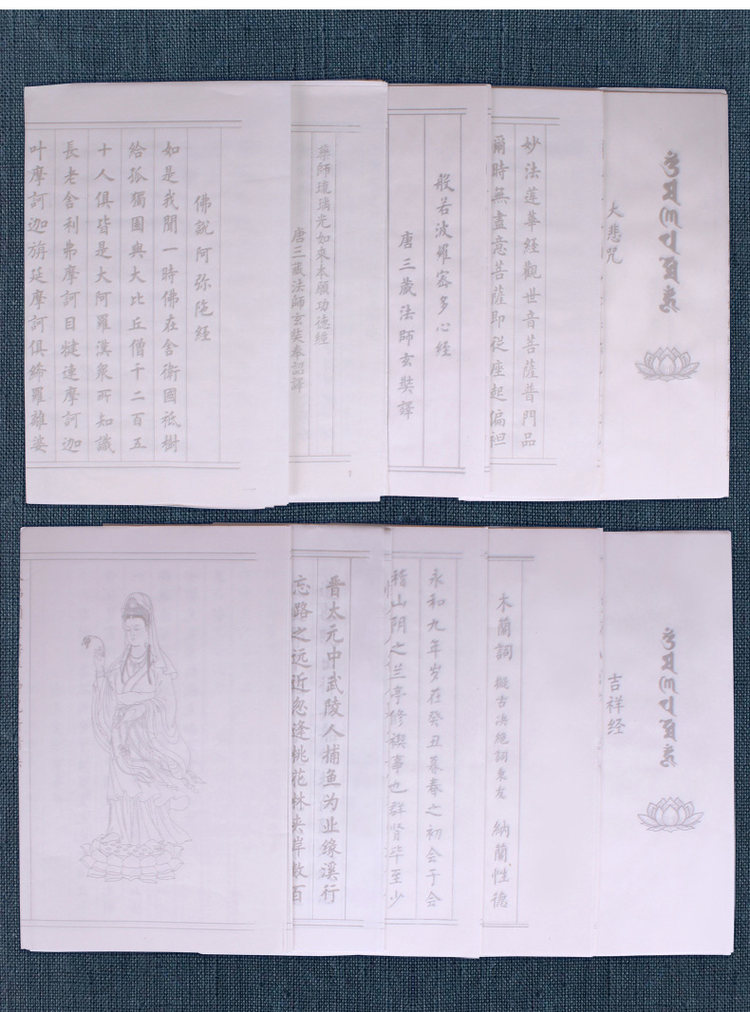 大悲咒
妙法蓮華經觀世音菩薩普門品
爾時無盡意菩薩即從座起偏袒
般若波羅密多心經
唐三藏法師玄奘譯
藥師琉璃光如來本願功德經
唐三藏法師玄奘奉詔譯
佛說阿弥陁經
如是我聞一時佛在舍衛國祇樹
給孤獨園與大比丘僧千二百五
十人俱皆是大阿羅漢衆所知識
長老舍利弗摩訶目犍連摩訶迦
叶摩訶迦旃延摩訶俱絺羅離婆
吉祥经
木蘭詞 擬古決絕詞柬友 納蘭性德
永和九年岁在癸丑暮春之初会于会
稽山阴之兰亭修禊事也群贤毕至少
晋太元中武陵人捕鱼为业缘溪行
忘路之远近忽逢桃花林夹岸数百